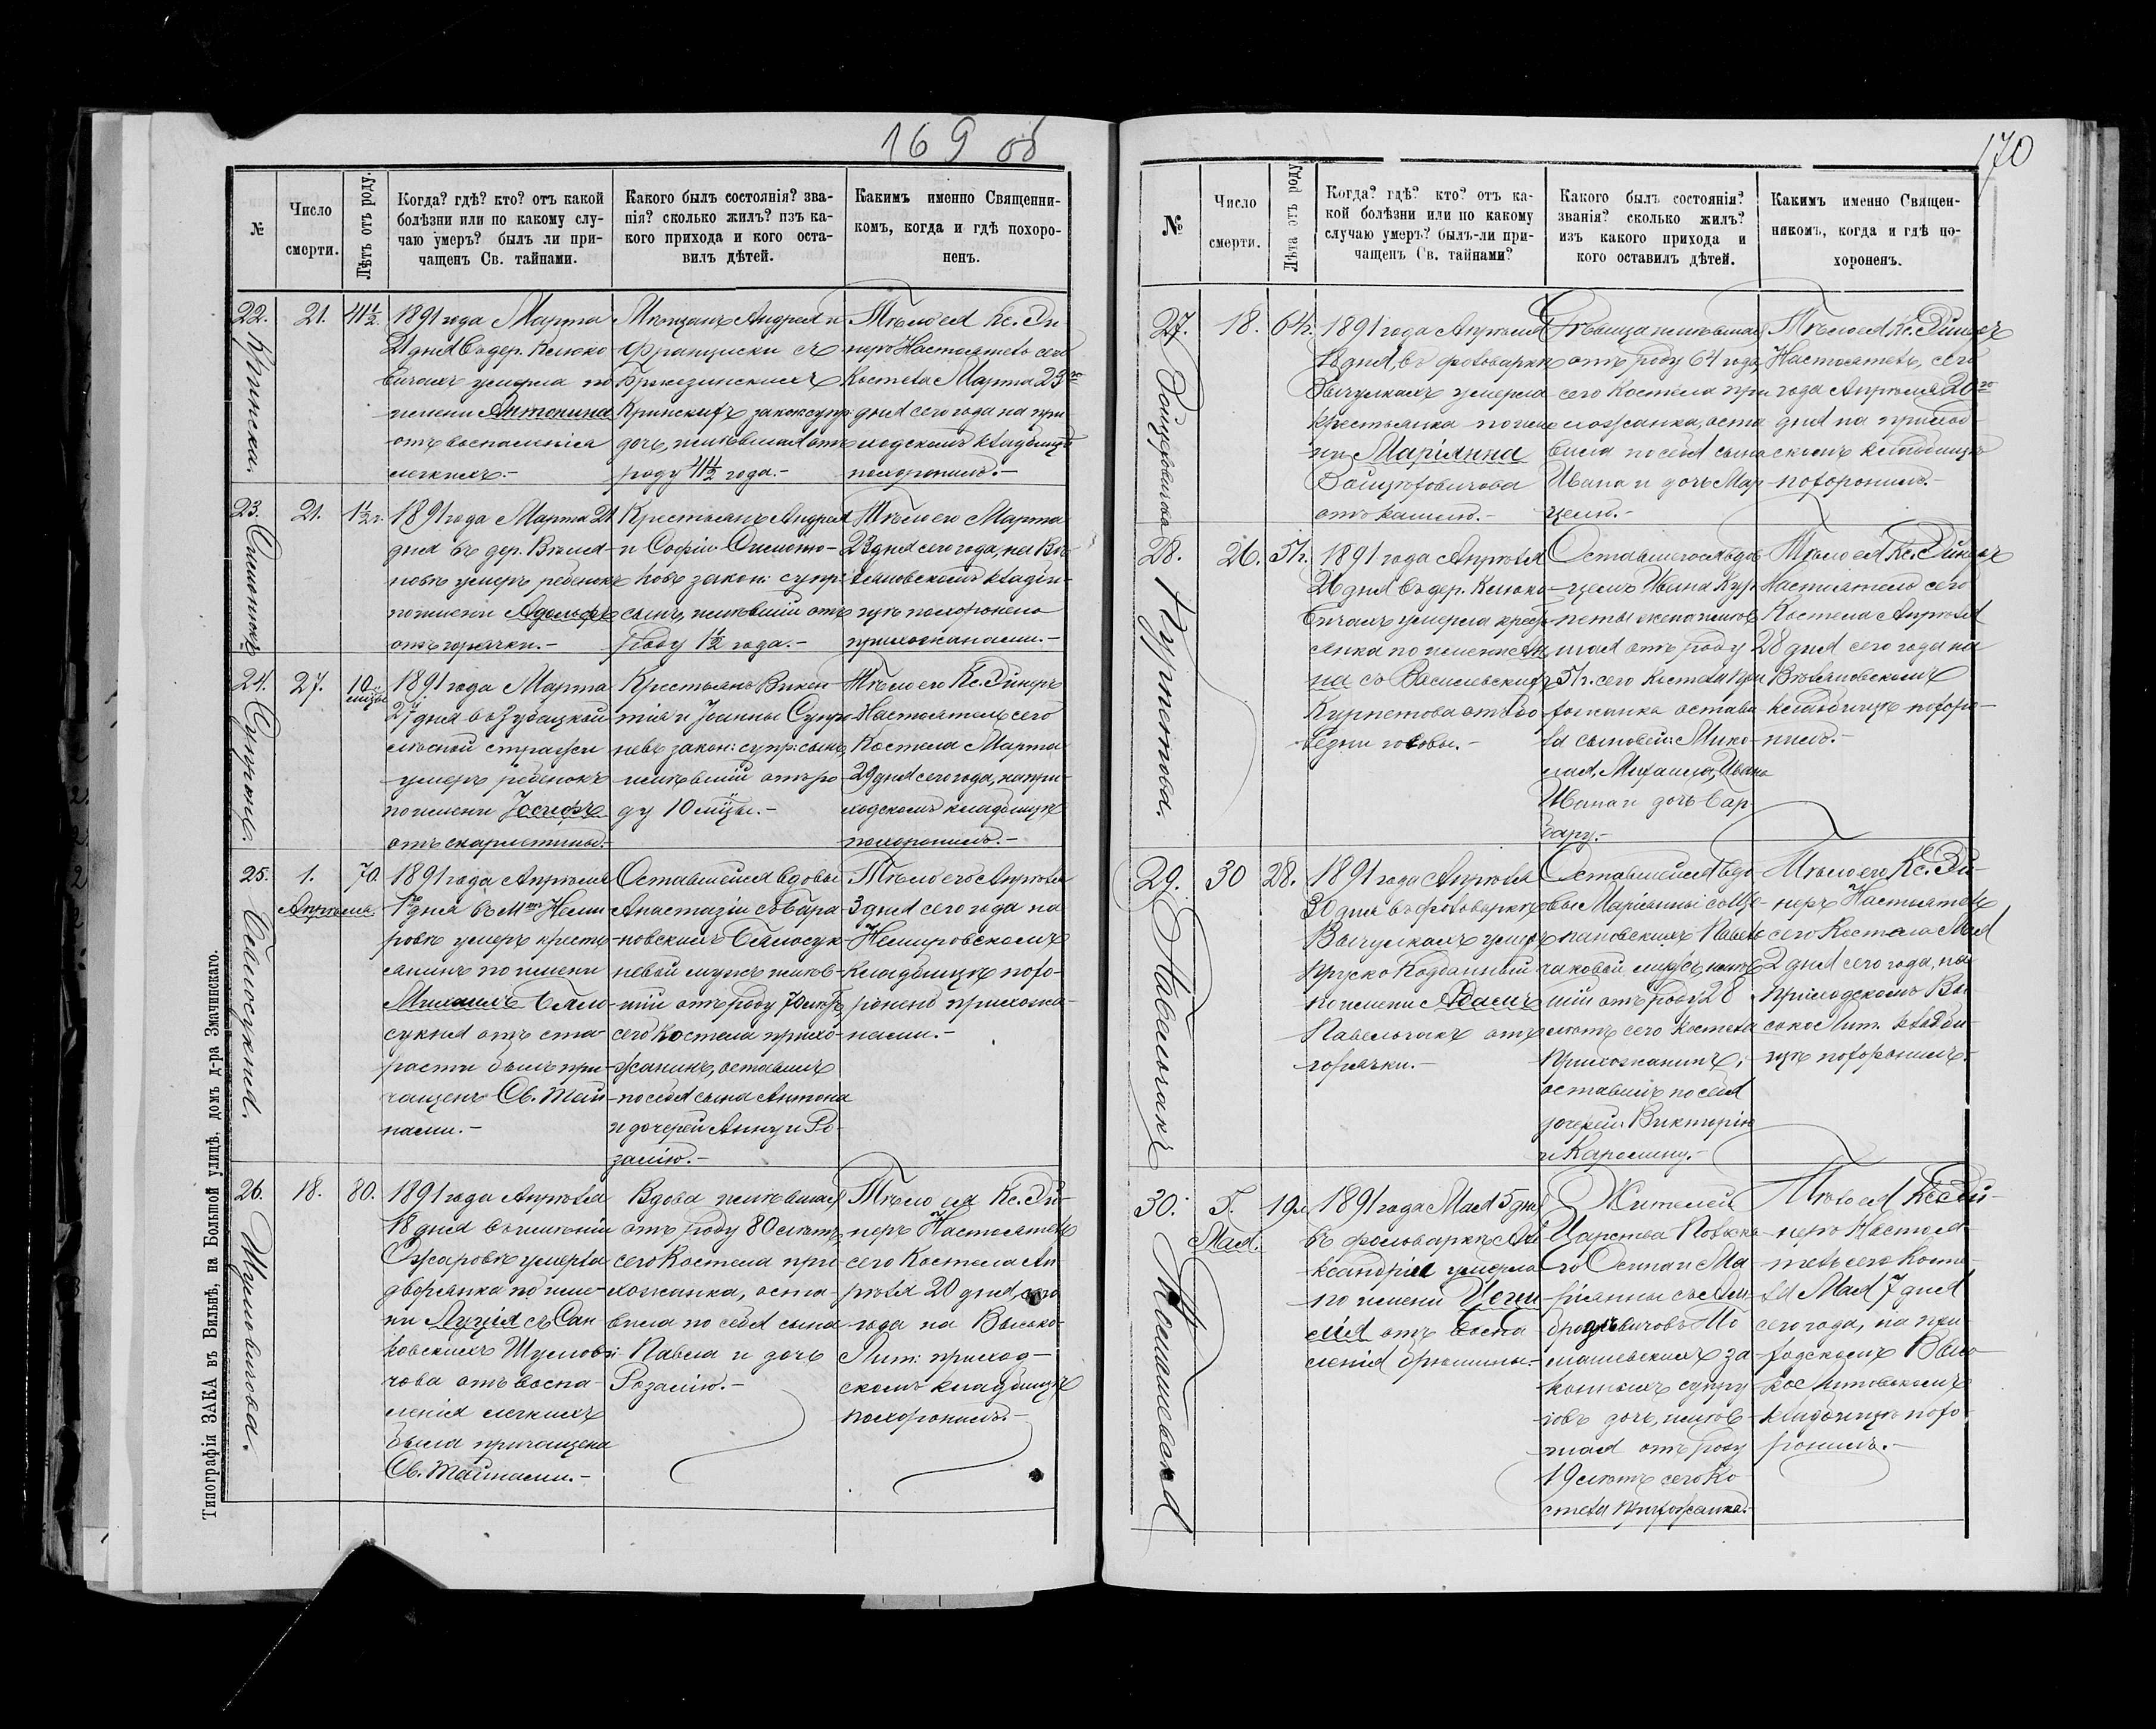 169 об
№
Число
смерти.
Лѣтъ отъ роду.
Когда? гдѣ? кто? отъ какой
болѣзни или по какому слу-
чаю умеръ? былъ ли при-
чащенъ Св. тайнами.
Какого былъ состоянія? зва-
нія? сколько жилъ? изъ ка-
кого прихода и кого оста-
вилъ дѣтей.
Какимъ именно Священни-
комъ, когда и гдѣ похоро-
ненъ.
22.
Кринска.
21.
4 1/2
1891 года Марта
21 дня въ дер. Клюко-
вичахъ умерла по
имени Антонина
отъ воспаленія
легкихъ.-
Мѣщанъ Андрея и
Франциски съ
Бржезинскихъ
Кринскихъ закон: супр:
дочь, имѣвшая отъ
роду 4 1/2 года.-
Тѣло ея Кс. Эй-
неръ Настоятель сего
Костела Марта 23го
дня сего года на при-
ходскомъ кладбищѣ
похоронилъ.-
23.
Симонюкъ
21.
1 1/2 г.
1891 года Марта 21
дня въ дер.
умеръ ребенокъ
по имени Адольфъ
отъ горячки.-
Крестьянъ Андрея
и Софіи Симоню-
ковъ закон: супр:
сынъ, имѣвшій отъ
роду 1 1/2 года.-
Тѣло его Марта
23 дня сего года, на
кладби-
щѣ похоронено
прихожанами.-
24.
27.
10
мѣсяц.
1891 года Марта
27 дня въ Зубацкой
лѣсной стражѣ
умеръ ребенокъ
по имени Іосифъ
отъ скарлетины.-
Крестьянъ Викен-
тія и Іоанны Супро-
невъ закон: супр: сынъ,
имѣвшій отъ ро-
ду 10 мѣсяц.-
Тѣло его Кс. Эйнеръ
Настоятель сего
Костела Марта
29 дня сего года, на при-
ходскомъ кладбищѣ
похоронилъ.-
25.
Бѣлосукня.
1.
Апрѣля.
70.
1891 года Апрѣля
1 дня въ м. Неми-
ровѣ умеръ кресть-
янинъ по имени
Михаилъ Бѣло-
сукня отъ ста-
рости былъ при-
чащенъ Св. Тай-
нами.-
Оставшейся вдовы
Анастазіи съ Бара-
новскихъ Бѣлосук-
невой мужъ имѣв-
шій отъ роду 70 лѣтъ,
сего Костела прихо-
жанинъ, оставилъ
по себѣ сына Антона
и дочерей Анну и Ро-
залію.-
Тѣло его Апрѣля
3 дня сего года на
Немировскомъ
Кладбищѣ похо-
ронено прихожа-
нами.-
26.
Шумовичова.
18.
80.
1891 года Апрѣля
18 дня въ имѣніи
Ожаровѣ умерла
дворянка по име-
ни Луція съ Сан-
ковскихъ Шумови-
чова отъ воспа-
ленія легкихъ
была причащена
Св. Тайнами.-
Вдова имѣвшая
отъ роду 80 лѣтъ,
сего Костела при-
хожанка, оста-
вила по себѣ сына
Павла и дочь
Розалію.-
Тѣло ея Кс. Эй-
неръ Настоятель
сего Костела Ап-
рѣля 20 дня, сего
года на Высоко-
Лит: приход-
скомъ кладбищѣ
похоронилъ.-
Типографія ЗАКА въ Вильнѣ, на Большой улицѣ, домъ д-ра Змачинскаго.
170
№
Число
смерти.
Лѣта отъ роду
Когда? гдѣ? кто? отъ ка-
кой болѣзни или по какому
случаю умеръ? былъ-ли при-
чащенъ Св. тайнами?
Какого былъ состоянія?
званія? сколько жилъ?
изъ какого прихода и
кого оставилъ дѣтей.
Какимъ именно Священ-
никомъ, когда и гдѣ по-
хороненъ.
27.
18.
64.
1891 года Апрѣля
18 дня, въ фольваркѣ
Вычулкахъ умерла
крестьянка по име-
ни Маріянна
отъ кашлю.-
имѣвшая
отъ роду 64 года,
сего Костела при-
хожанка, оста-
вила по себѣ сына
Ивана и дочь Мар-
целю.-
Тѣло ея Кс. Эйнеръ
Настоятель, сего
года Апрѣля 20го
дня на приход-
скомъ кладбищѣ
похоронилъ.-
28.
Курпетова.
26.
57.
1891 года Апрѣля
26 дня въ дер. Клюко-
вичахъ умерла кресть-
янка по имени Ан-
на съ Василевскихъ
Курпетова отъ бо-
лѣзни головы.-
Оставшегося вдов-
цемъ Ивана Кур-
петы жена имѣв-
шая отъ роду
57 г. сего Костела при-
хожанка остави-
ла сыновей: Мико-
лая, Михаила, Ивана
Ивана и дочь Вар-
вару.-
Тѣло ея Кс. Эйнеръ
Настоятель сего
Костела Апрѣля
28 дня сего года на
кладбищѣ похоро-
нилъ.-
29.
Павельчакъ
30
28.
1891 года Апрѣля
30 дня въ фольваркѣ
Вычулкахъ умеръ
Прускоподданный
по имени Адамъ
Павельчакъ отъ
горячки.-
Оставшейся вдо-
вы Маріанны со Ще-
пановскихъ Павель-
чаковой мужъ, имѣв-
шій отъ роду 28
лѣтъ сего Костела
Прихожанинъ,
оставилъ по себѣ
дочерей: Викторію
и Каролину.-
Тѣло его Кс. Эй-
неръ Настоятель
сего Костела Мая
2 дня сего года, на
Приходскомъ Вы-
соко Лит. кладби-
щѣ похоронилъ.-
30.
Томашевская
5.
Мая.
19
1891 года Мая 5 дня
въ фольваркѣ Але-
ксандріи умерла
по имени
отъ воспа-
ленія брюшины.-
Жителей
Царства Польска-
го Осипа и Ма-
ріянны съ
То-
машевскихъ за-
конныхъ супру-
говъ дочь, имѣв-
шая отъ роду
19 лѣтъ сего Ко-
стела прихожанка.-
Тѣло ея Кс. Эй-
неръ Настоя-
тель сего Косте-
ла Мая 7 дня
сего года, на при-
ходскомъ Высо-
ко Литовскомъ
кладбищѣ похо-
ронилъ.-